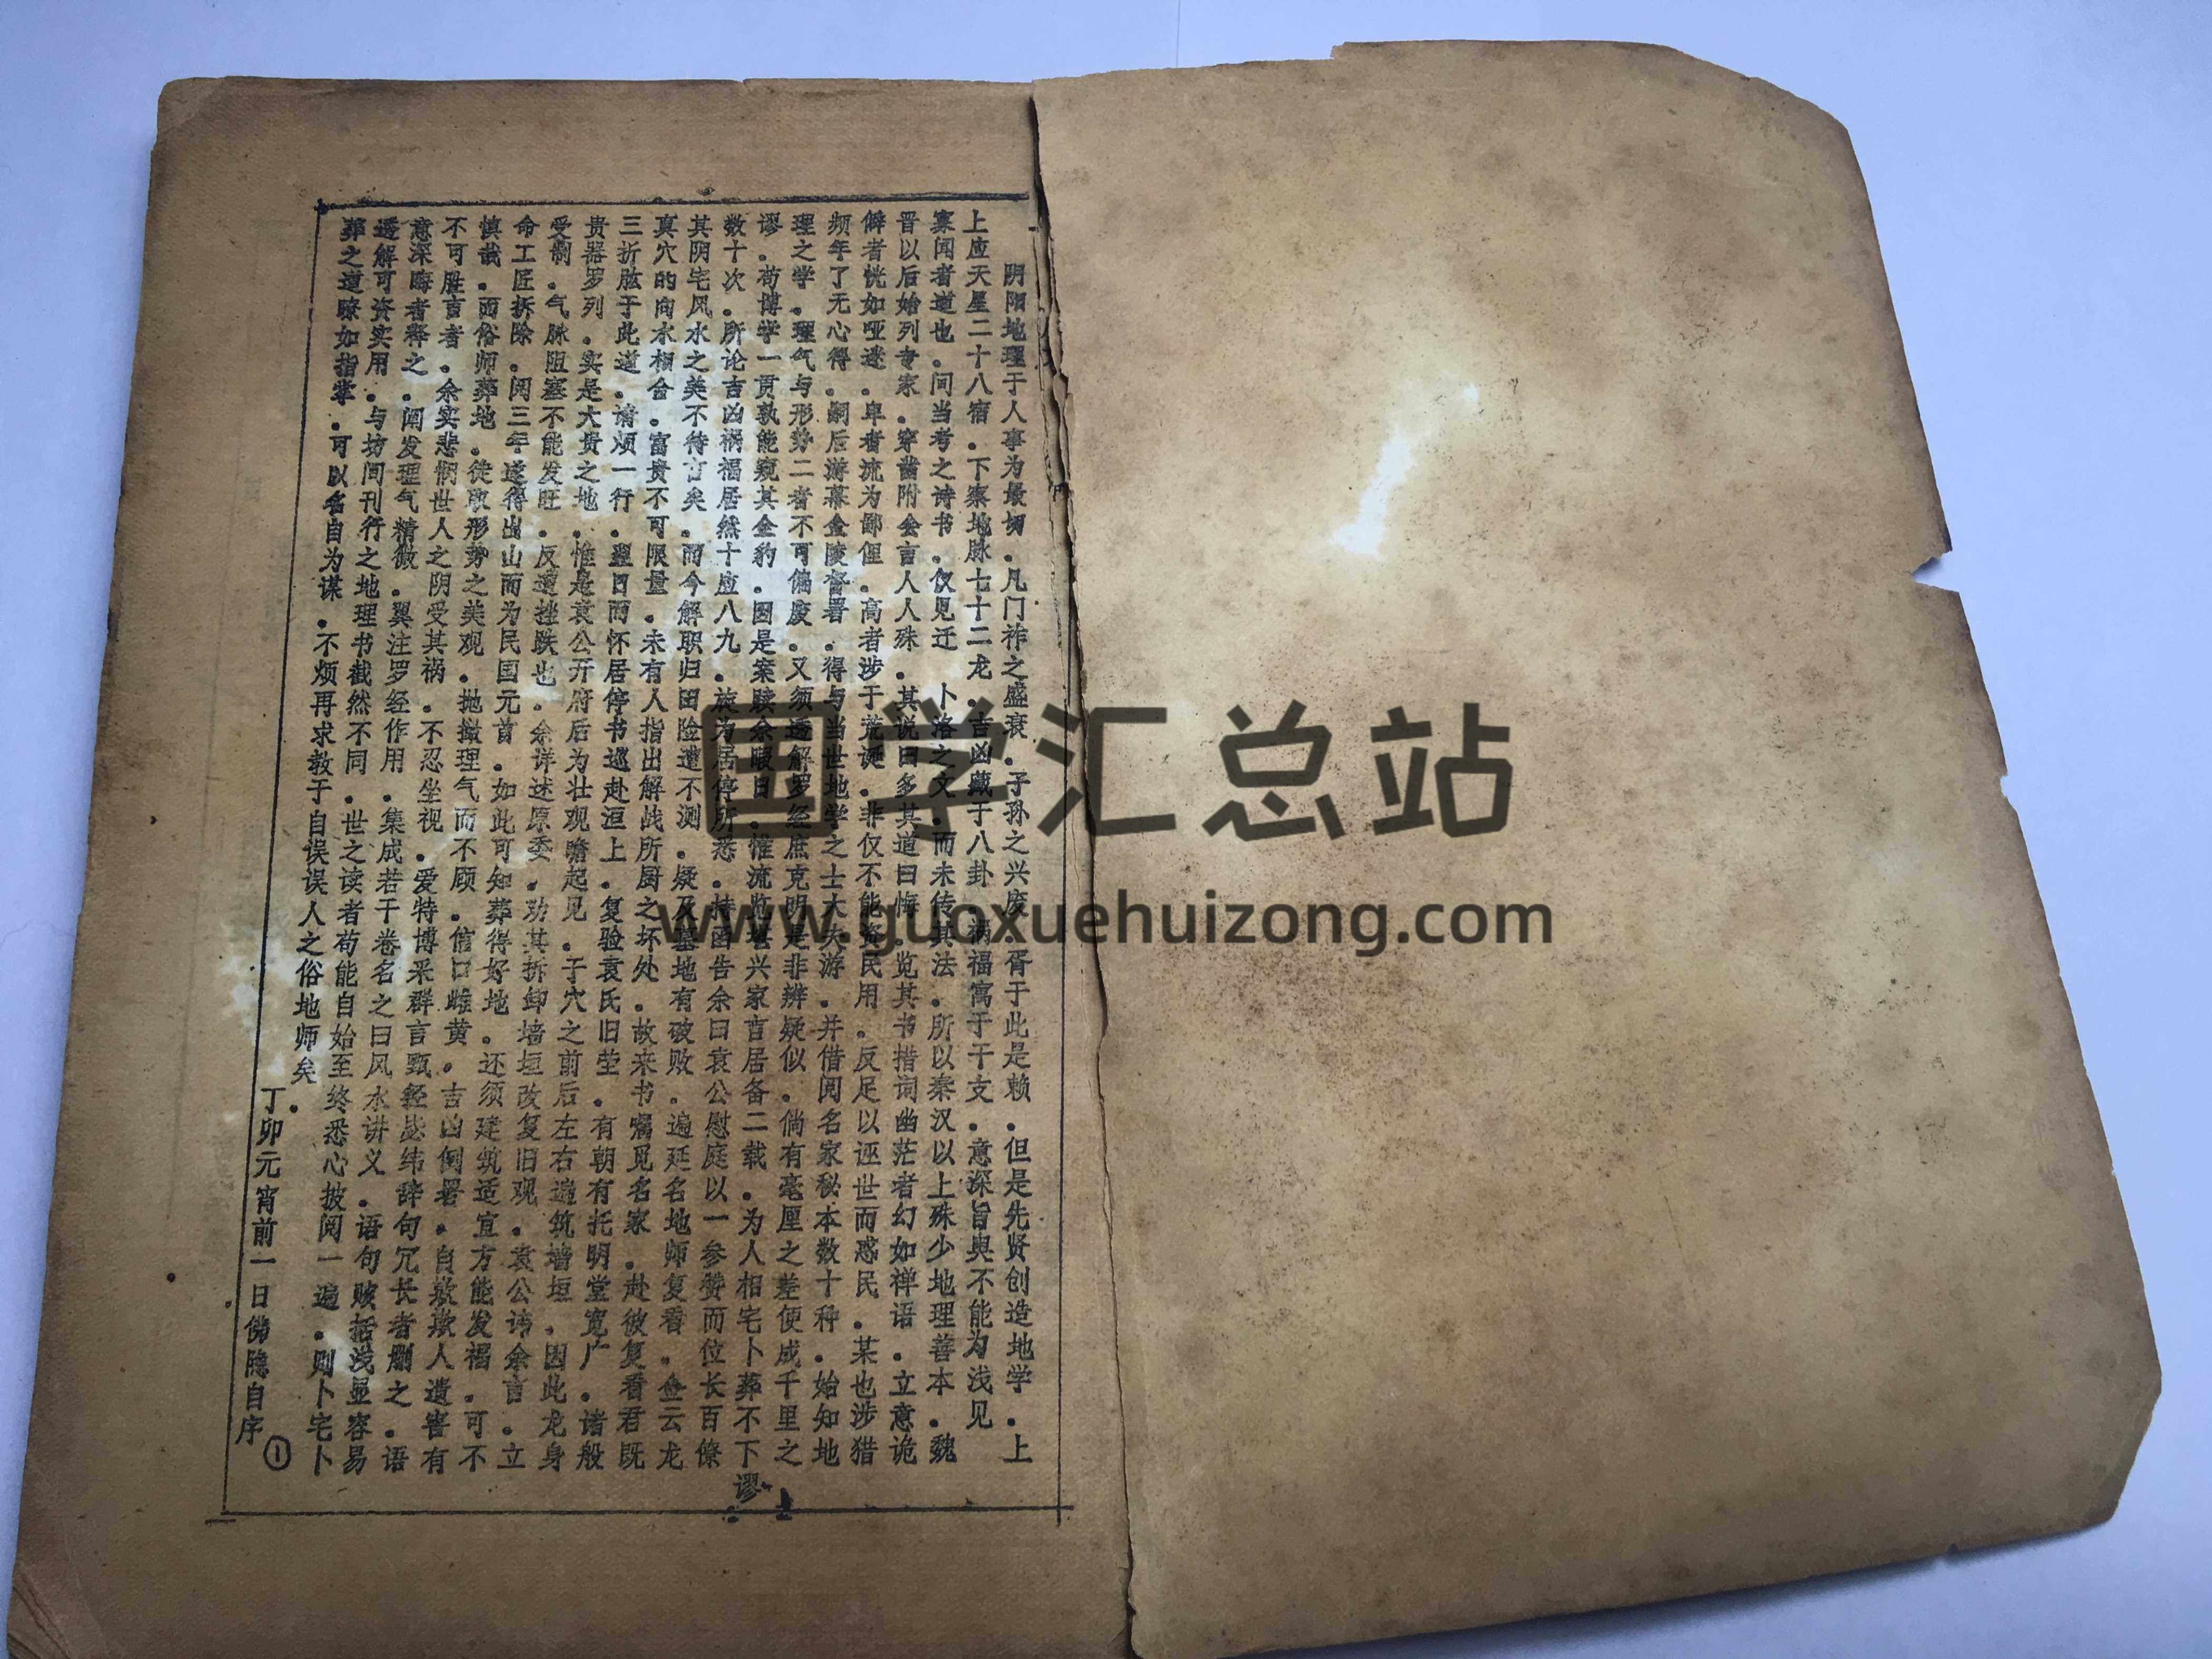 阴阳地理于人事为最切．凡门祚之盛衰．子孙之兴废．胥于此是赖．但是先贤创造地学．上
上应天星二十八宿．下察地脉七十二龙．吉凶藏于八卦 祸福寓于干支．意深旨奥不能为浅见
寡闻者道也．间当考之诗书．仅见迁 卜洛之文．而未传其法．所以秦汉以上殊少地理善本．魏
晋以后始列专家．穿凿附会言人人殊．其说曰多其道曰悔．览其书措词幽茫者幻如禅语．立意诡
僻者恍如哑迷．卑者流为鄙俚．高者涉于荒诞．非仅不能资民用．反足以诬世而惑民．某也涉猎
频年了无心得．嗣后游幕金陵督署．得与当世地学之士大夫游．并借阅名家秘本数十种．始知地
理之学．理气与形势二者不可偏废．又须透解罗经庶克明是非辨疑似．倘有毫厘之差便成千里之
谬．苟博学一贯孰能窥其全豹．因是案牍余暇日．惟流览堪兴家言居备二载．为人相宅卜葬不下
谬
数十次．所论吉凶祸福居然十应八九．旋为居停所悉．持函告余曰袁公慰庭以一参赞而位长百僚
其阴宅风水之美不待言矣．而今解职归田险遭不测．疑及墓地有破败．遍延名地师复看．佥云龙
真穴的向水相合．富贵不可限量．未有人指出解战所厨之坏处．故来书嘱觅名家．赴彼复看君既
三折肱于此道．请烦一行．翌日而怀居停书巡赴洹上．复验袁氏旧茔．有朝有托明堂宽广．诸般
贵器罗列．实是大贵之地．惟是袁公开府后为壮观瞻起见．于穴之前后左右遍筑墙垣．因此龙身
受制．气脉阻塞不能发旺．反遭挫跌也．余详述原委．劝其拆卸墙垣改复旧观．袁公讳余言．立
命工匠拆除．阅三年遂得出山而为民国元首．如此可知葬得好地．还须建筑适宜方能发福．可不
慎哉．而俗师葬地．徒取形势之美观．抛撇理气而不顾．信口雌黄．吉凶倒置．自欺欺人遗害有
不可胜言者．余实悲悯世人之阴受其祸．不忍坐视．爱特博采群言甄经毖纬辞句冗长者删之．语
意深晦者释之．阐发理气精微．翼注罗经作用．集成若干卷名之曰风水讲义．语句赅括浅显容易
透解可资实用．与坊间刊行之地理书截然不同．世之读者苟能自始至终悉心披阅一遍．则卜宅卜
葬之道瞭如指掌．可以名自为谋．不烦再求教于自误误人之俗地师矣．
丁卯元宵前一日佛隐自序
①
国学汇总站
www.guoxuehuizong.com